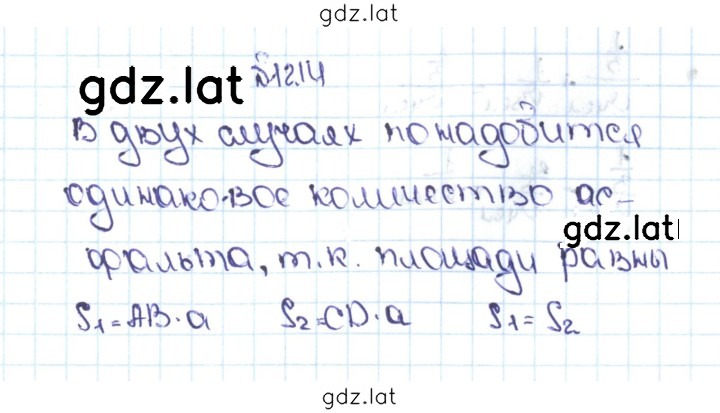 gdz.lat
gdz.lat №1214
В двух случаях понадобится
одинаковое количество ас-
gdz.lat
фальта, т.к. площади равны
S₁=AB·a S₂=CD·a S₁=S₂
gdz.lat